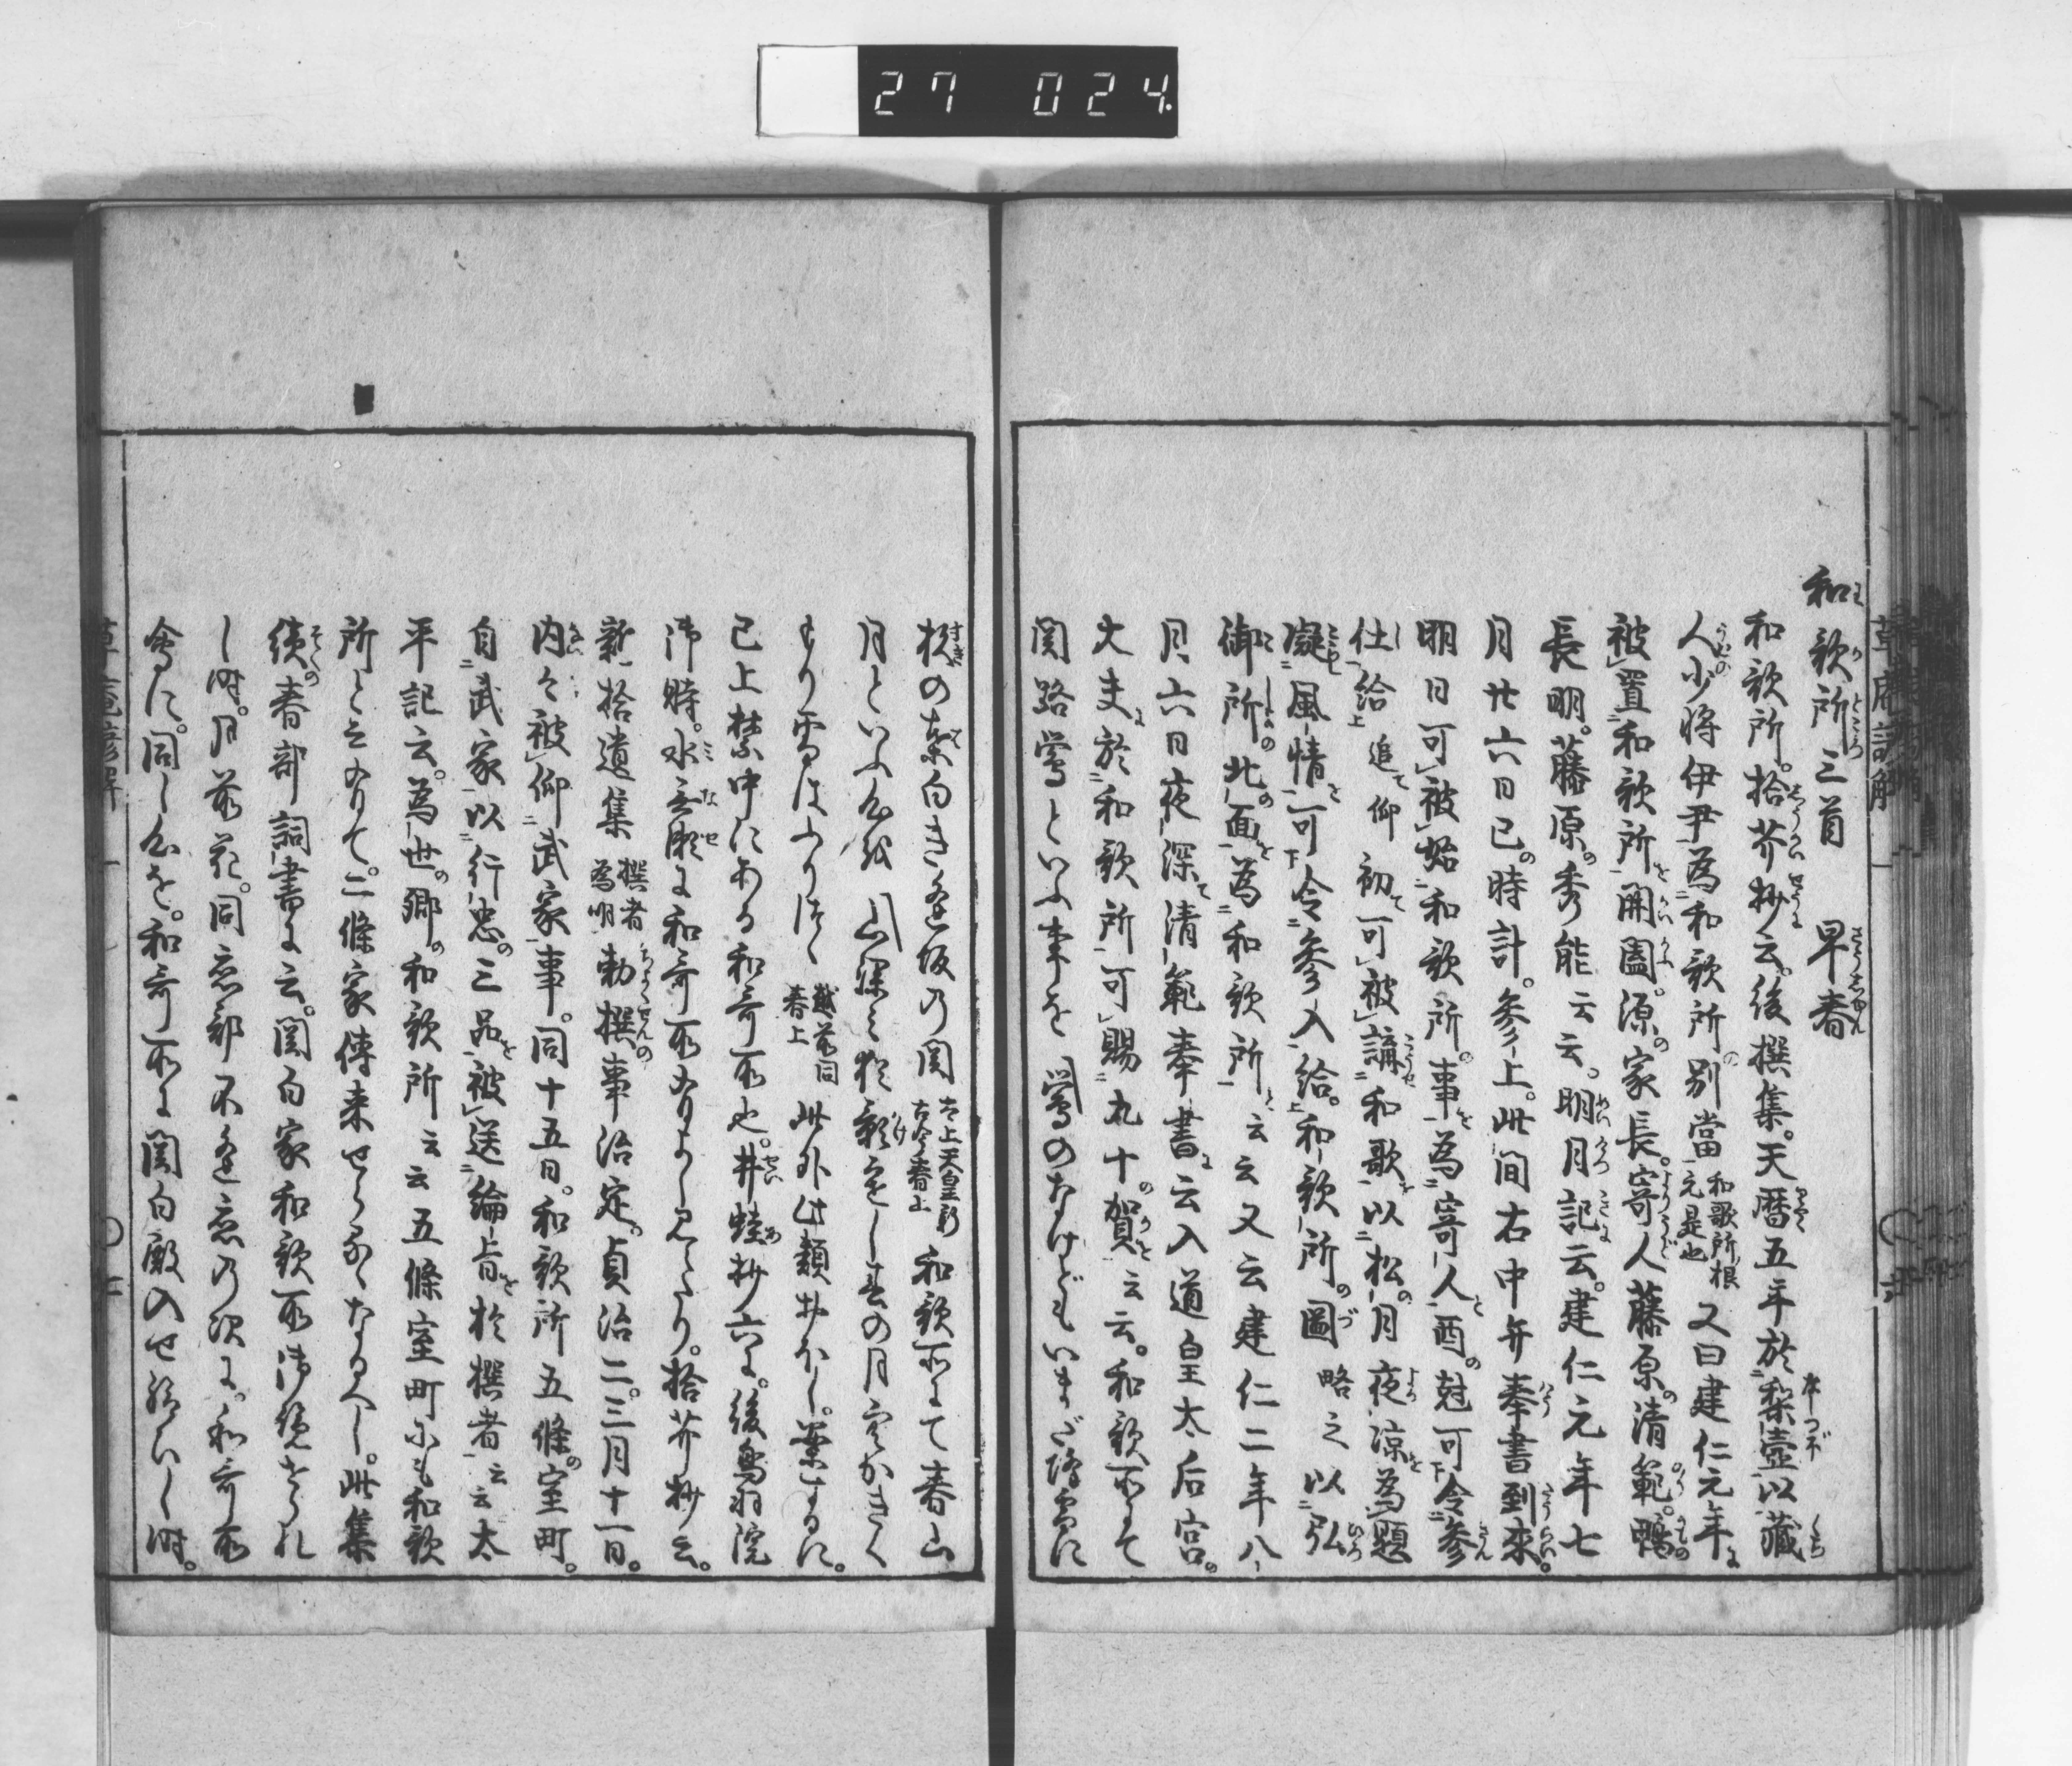 27 024
和歌所三首 早春
和歌所。拾芥抄云。後撰集。天暦五年於梨壺以蔵
人少将伊尹為和歌所別當 和歌所根元是也 又曰建仁元年
被置和歌所開闔。源家長。寄人藤原清範。鴨
長明。藤原秀能云云。明月記云。建仁元年七
月廿六日巳時計。参上。此間右中弁奉書到来。
明日可被始和歌所事為寄人酉尅可令参
仕給 追仰 初可被講和歌以松月夜涼為題
凝風情可令参入給。和歌所圖 略之 以弘
御所北面為和歌所云云又云建仁二年八
月六日夜深清範奉書云入道皇太后宮
大夫於和歌所可賜九十賀云云。和歌所にて
関路鶯といふ事を 鶯のなけどもいまだ降雪に
杉の葉白き逢坂の関 太上天皇新古今春上 和歌所にて春山
月といふ心を 山深み猶影さむし春の月空かきく
もり雪はふりつゝ 越前同春上 此外此類おほし。案するに。
已上禁中にある和哥所也。井蛙抄六に。後鳥羽院
御時。水無瀬に和哥所有よし見えたり。拾芥抄云。
新拾遺集 撰者為明 勅撰事治定。貞治二。三月十一日。
内々被仰武家事。同十五日。和歌所五條室町。
自武家以行忠三品被送綸旨於撰者云云太
平記云。為世卿和歌所云云五條室町にも和歌
所と云有て。二條家傳来せらるゝなるへし。此集
続春部詞書に云。関白家和歌所御続せられ
し時。月前花。同恋部不逢恋の次に。和哥所
會に。同し心を。和哥所に関白殿入せ給ひし時。
草庵諺解 一